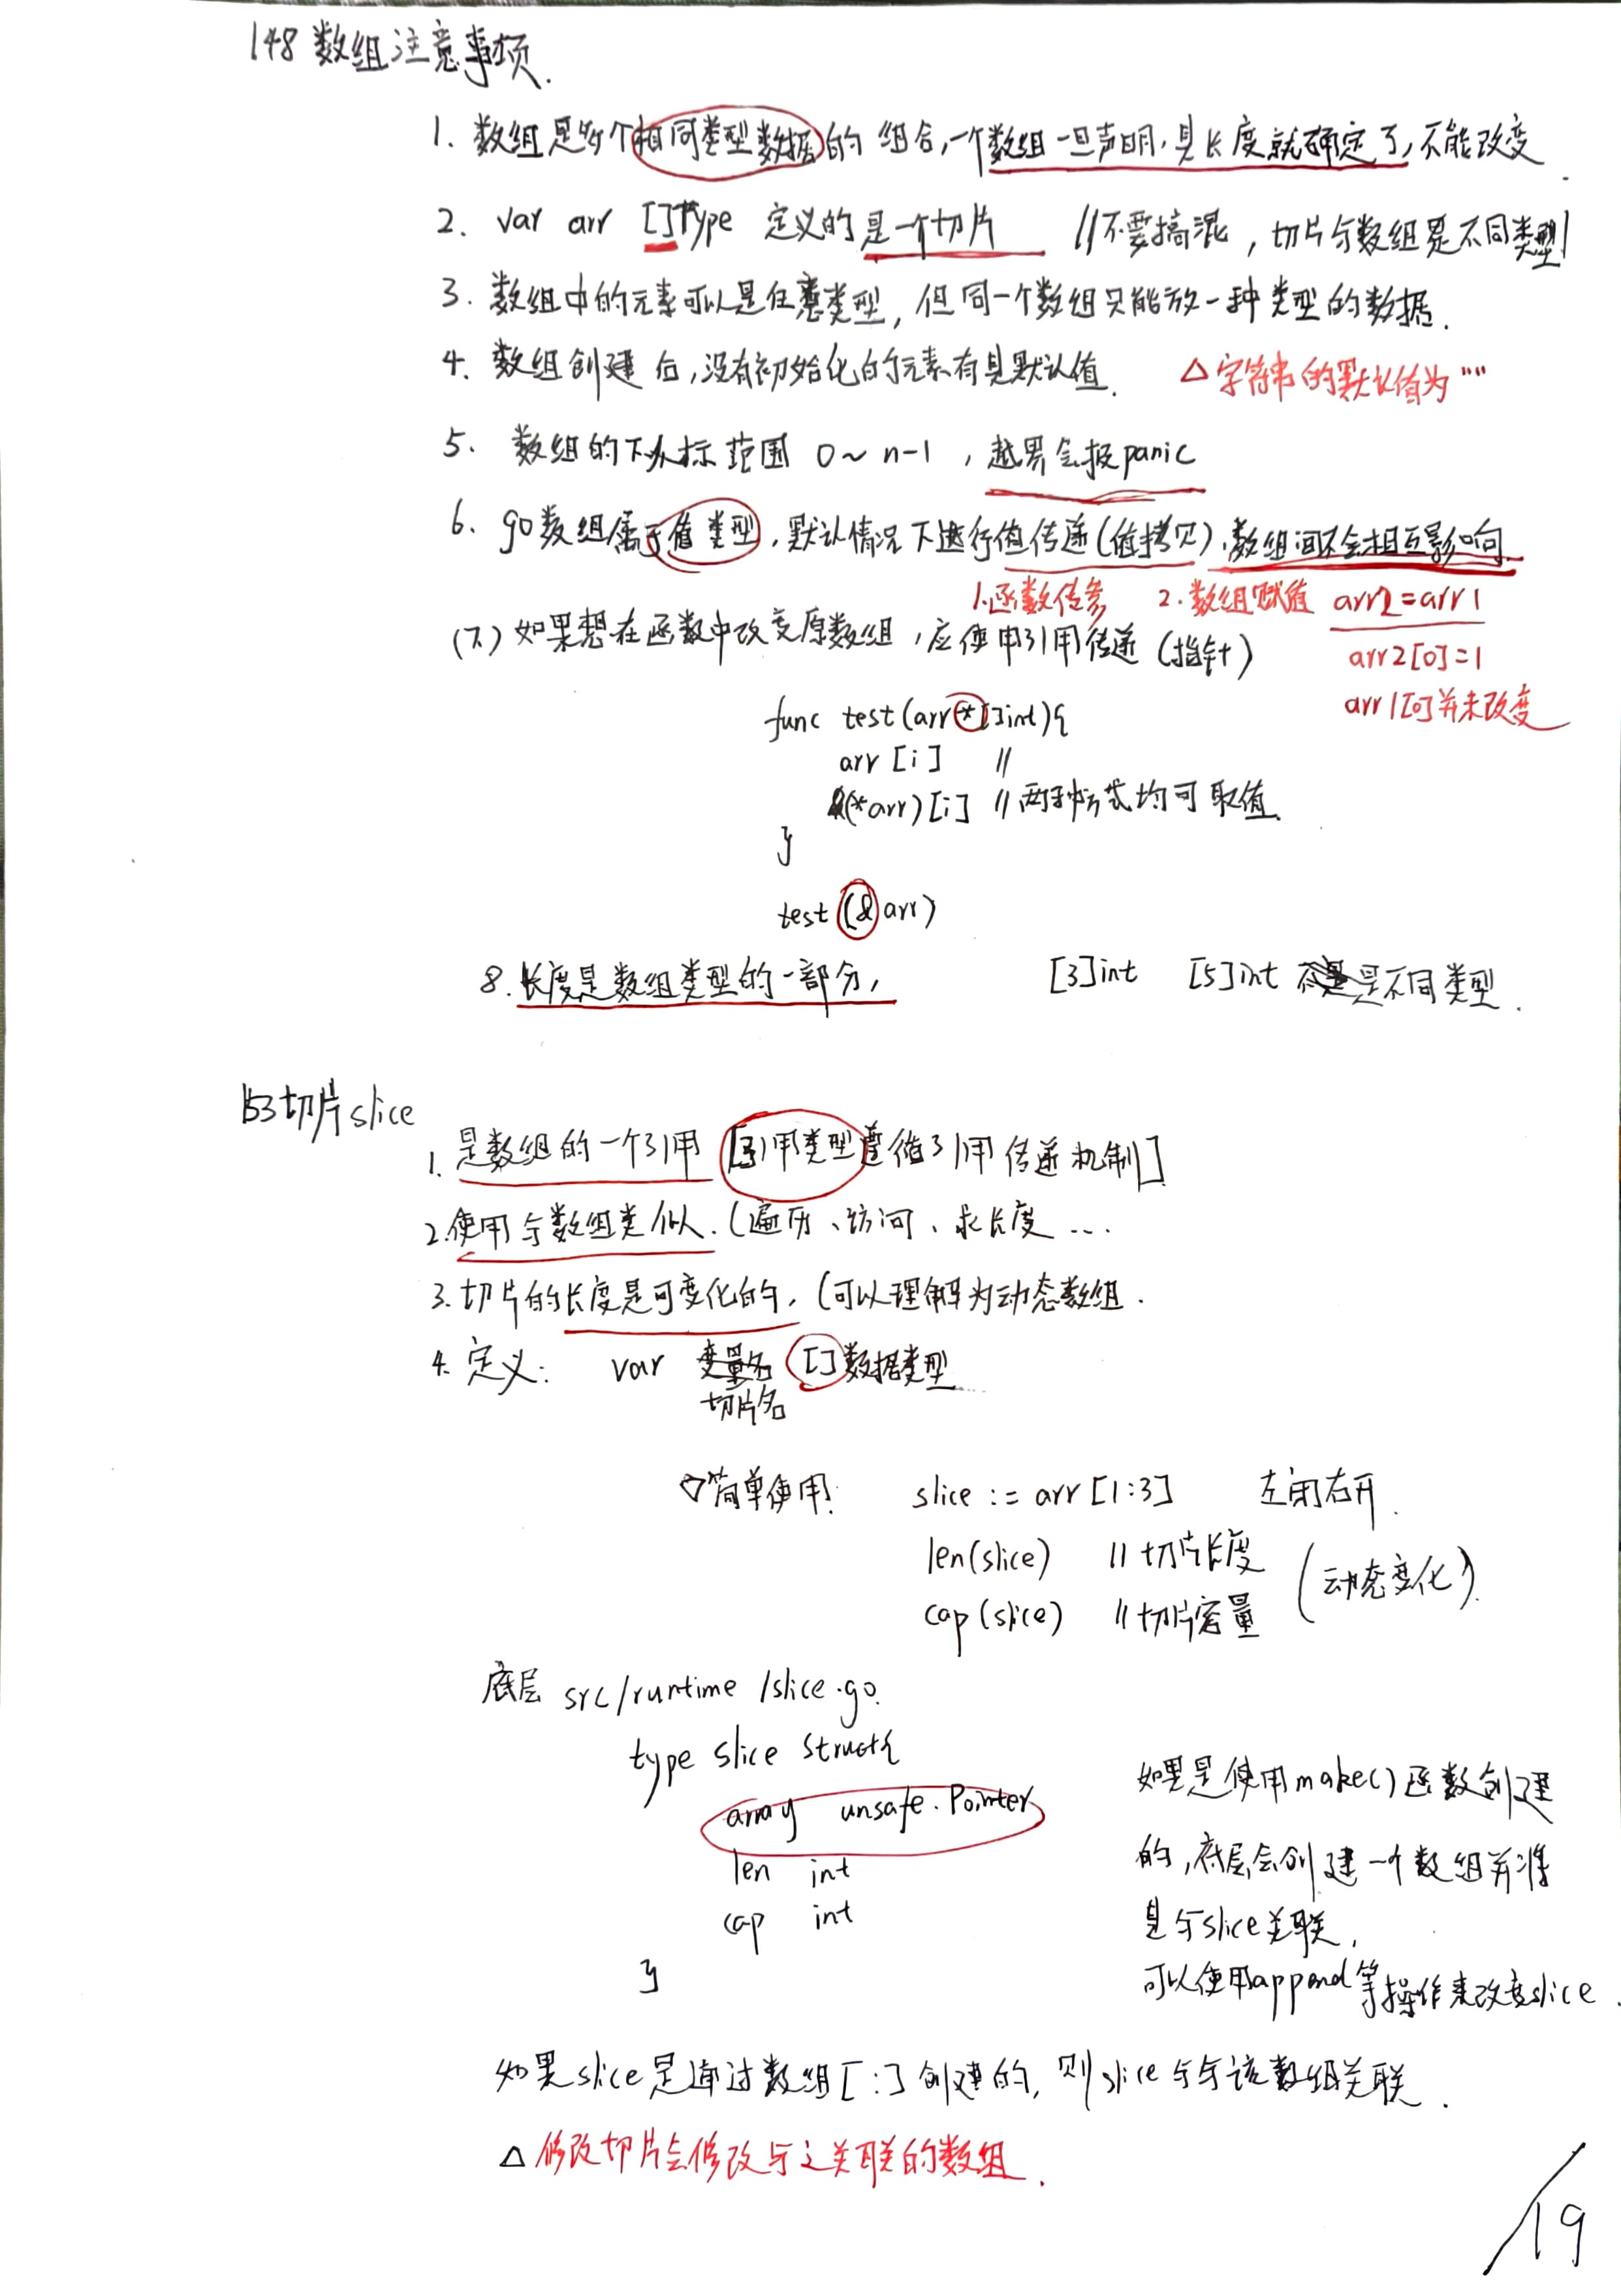 148 数组注意事项.
1. 数组是多个相同类型数据的 组合,一个数组一旦声明,其长度就确定了,不能改变.
2. var arr []Type 定义的是一个切片 //不要搞混,切片与数组是不同类型
3. 数组中的元素可以是任意类型,但同一个数组只能放一种类型的数据.
4. 数组创建后,没有初始化的元素有其默认值. △字符串的默认值为""
5. 数组的下标范围 0~n-1,越界会报panic
6. go数组属于值类型,默认情况下进行值传递(值拷贝),数组间不会相互影响
1.函数传参 2.数组赋值 arr2=arr1
(7) 如果想在函数中改变原数组,应使用引用传递 (指针)
arr2[0]=1
arr1[0]并未改变
func test(arr *[]int){
arr[i] //
(*arr)[i] //两种方式均可取值.
}
test(&arr)
8.长度是数组类型的一部分, [3]int [5]int 是不同类型.
153切片slice
1.是数组的一个引用 [引用类型遵循引用传递机制]
2.使用与数组类似.(遍历、访问、求长度...
3.切片的长度是可变化的,(可以理解为动态数组.
4.定义: var 变量名 []数据类型
切片名
简单使用: slice := arr[1:3] 左闭右开.
len(slice) //切片长度
(动态变化).
cap(slice) //切片容量
底层 src/runtime/slice.go.
type slice struct{
array unsafe.Pointer
len int
cap int
}
如果是使用make()函数创建
的,底层会创建一个数组并将
其与slice关联,
可以使用append等操作来改变slice.
如果slice是通过数组[:]创建的,则slice与与该数组关联.
△ 修改切片会修改与之关联的数组.
19